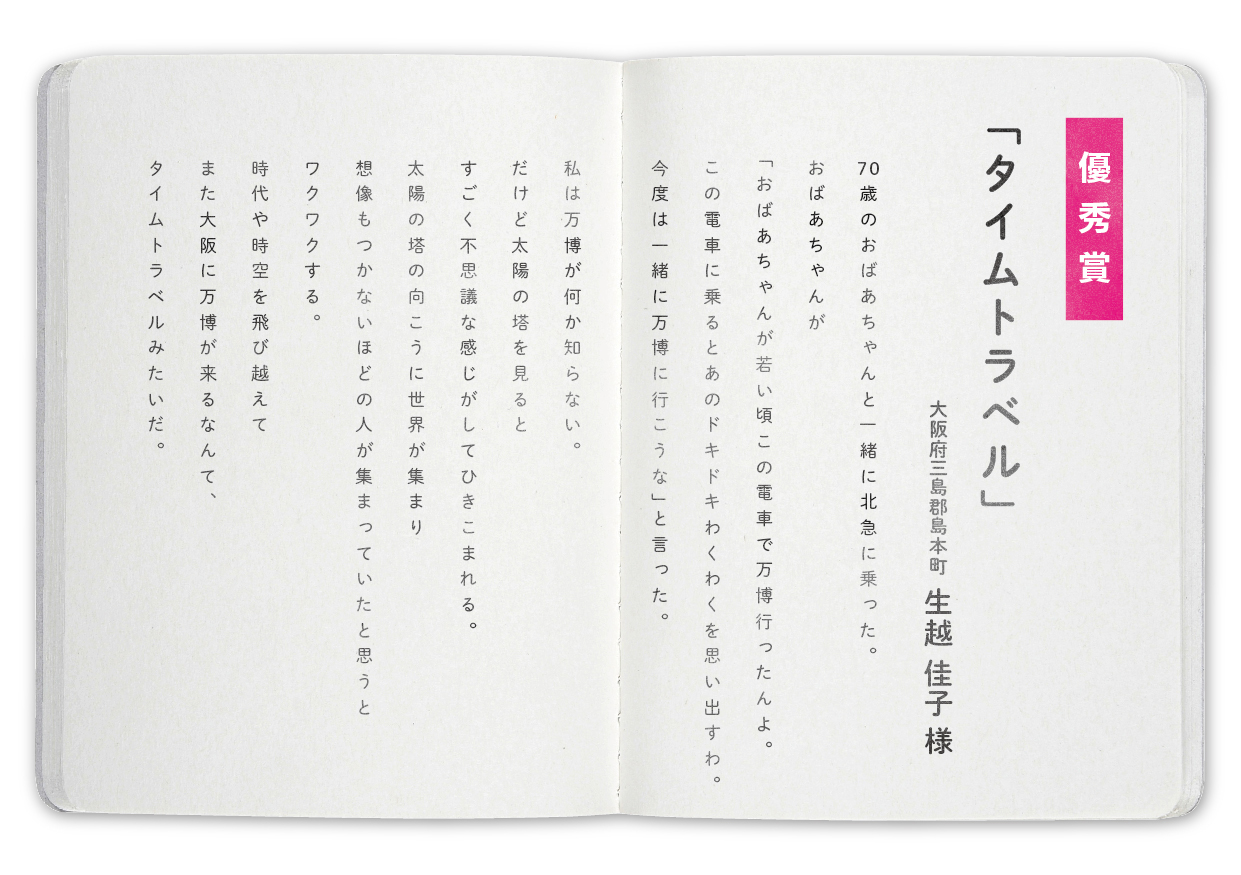 優秀賞
「タイムトラベル」
大阪府三島郡島本町 生越 佳子 様
70歳のおばあちゃんと一緒に北急に乗った。
おばあちゃんが
「おばあちゃんが若い頃この電車で万博行ったんよ。
この電車に乗るとあのドキドキわくわくを思い出すわ。
今度は一緒に万博に行こうな」と言った。
私は万博が何か知らない。
だけど太陽の塔を見ると
すごく不思議な感じがしてひきこまれる。
太陽の塔の向こうに世界が集まり
想像もつかないほどの人が集まっていたと思うと
ワクワクする。
時代や時空を飛び越えて
また大阪に万博が来るなんて、
タイムトラベルみたいだ。